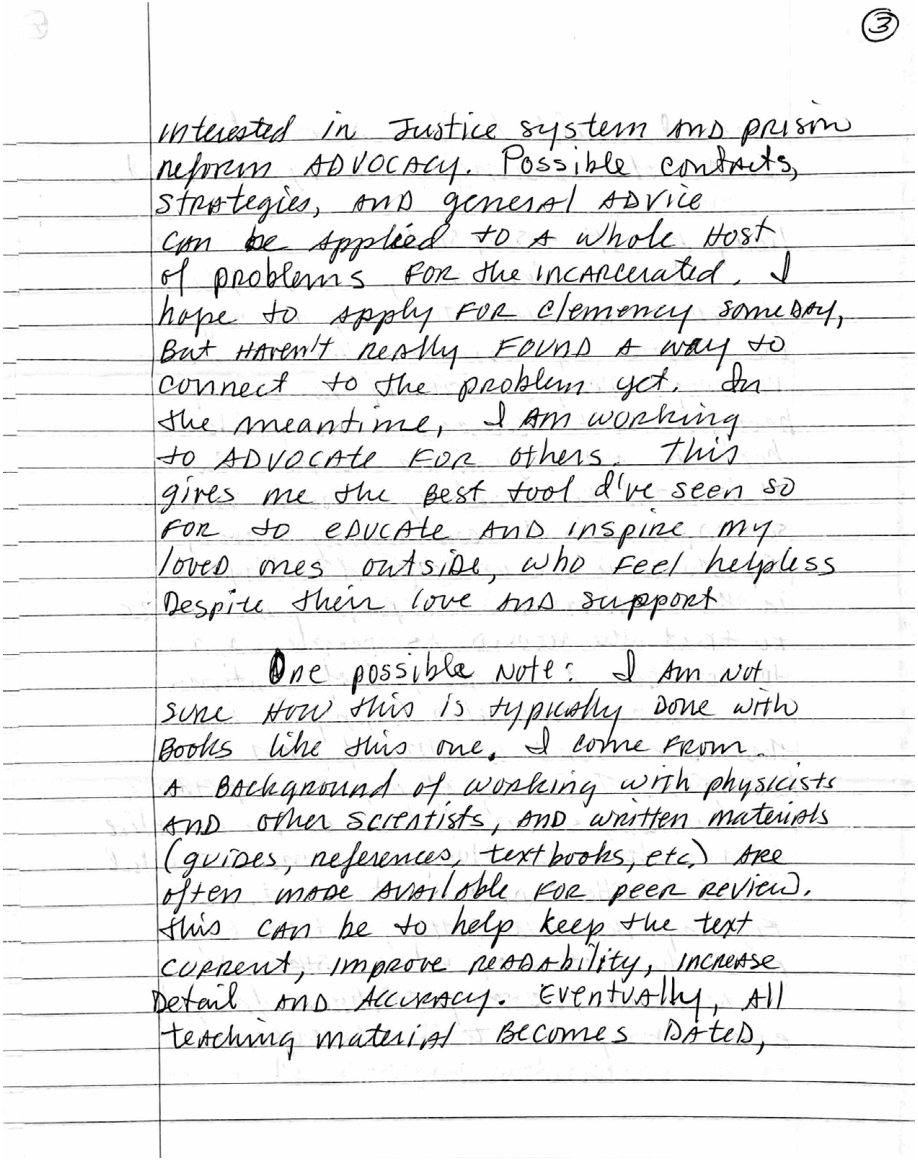 3
interested in Justice system AND prison
reform ADVOCACY. Possible contacts,
strategies, AND general ADVICE
CAN be Applied to A whole Host
of problems FOR the INCARCERATED. I
hope to Apply FOR clemency SOMEDAY,
But HAVEN'T REALLY FOUND A WAY to
connect to the problem yet. In
the meantime, I AM working
to ADVOCATE FOR others. This
gives me the Best tool I've seen so
FOR to EDUCATE AND INSPIRE my
loved ones outside, who FEEL helpless
Despite their love AND support
One possible Note: I AM Not
SURE HOW this is typically DONE with
BOOKS like this one. I come FROM
A BACKGROUND of working with physicists
AND other SCIENTISTS, AND written materials
(guides, references, textbooks, etc.) ARE
often made AVAILABLE FOR PEER REVIEW.
this CAN be to help keep the text
CURRENT, IMPROVE READABILITY, INCREASE
Detail AND ACCURACY. EVENTUALLY, All
teaching material BECOMES DATED,